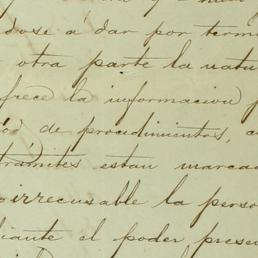 dose á dar por term
otra parte la natu
frece la informacion p
ó de procedimientos, c
trámites estan marcad
irrecusable la perso
diante el poder prese